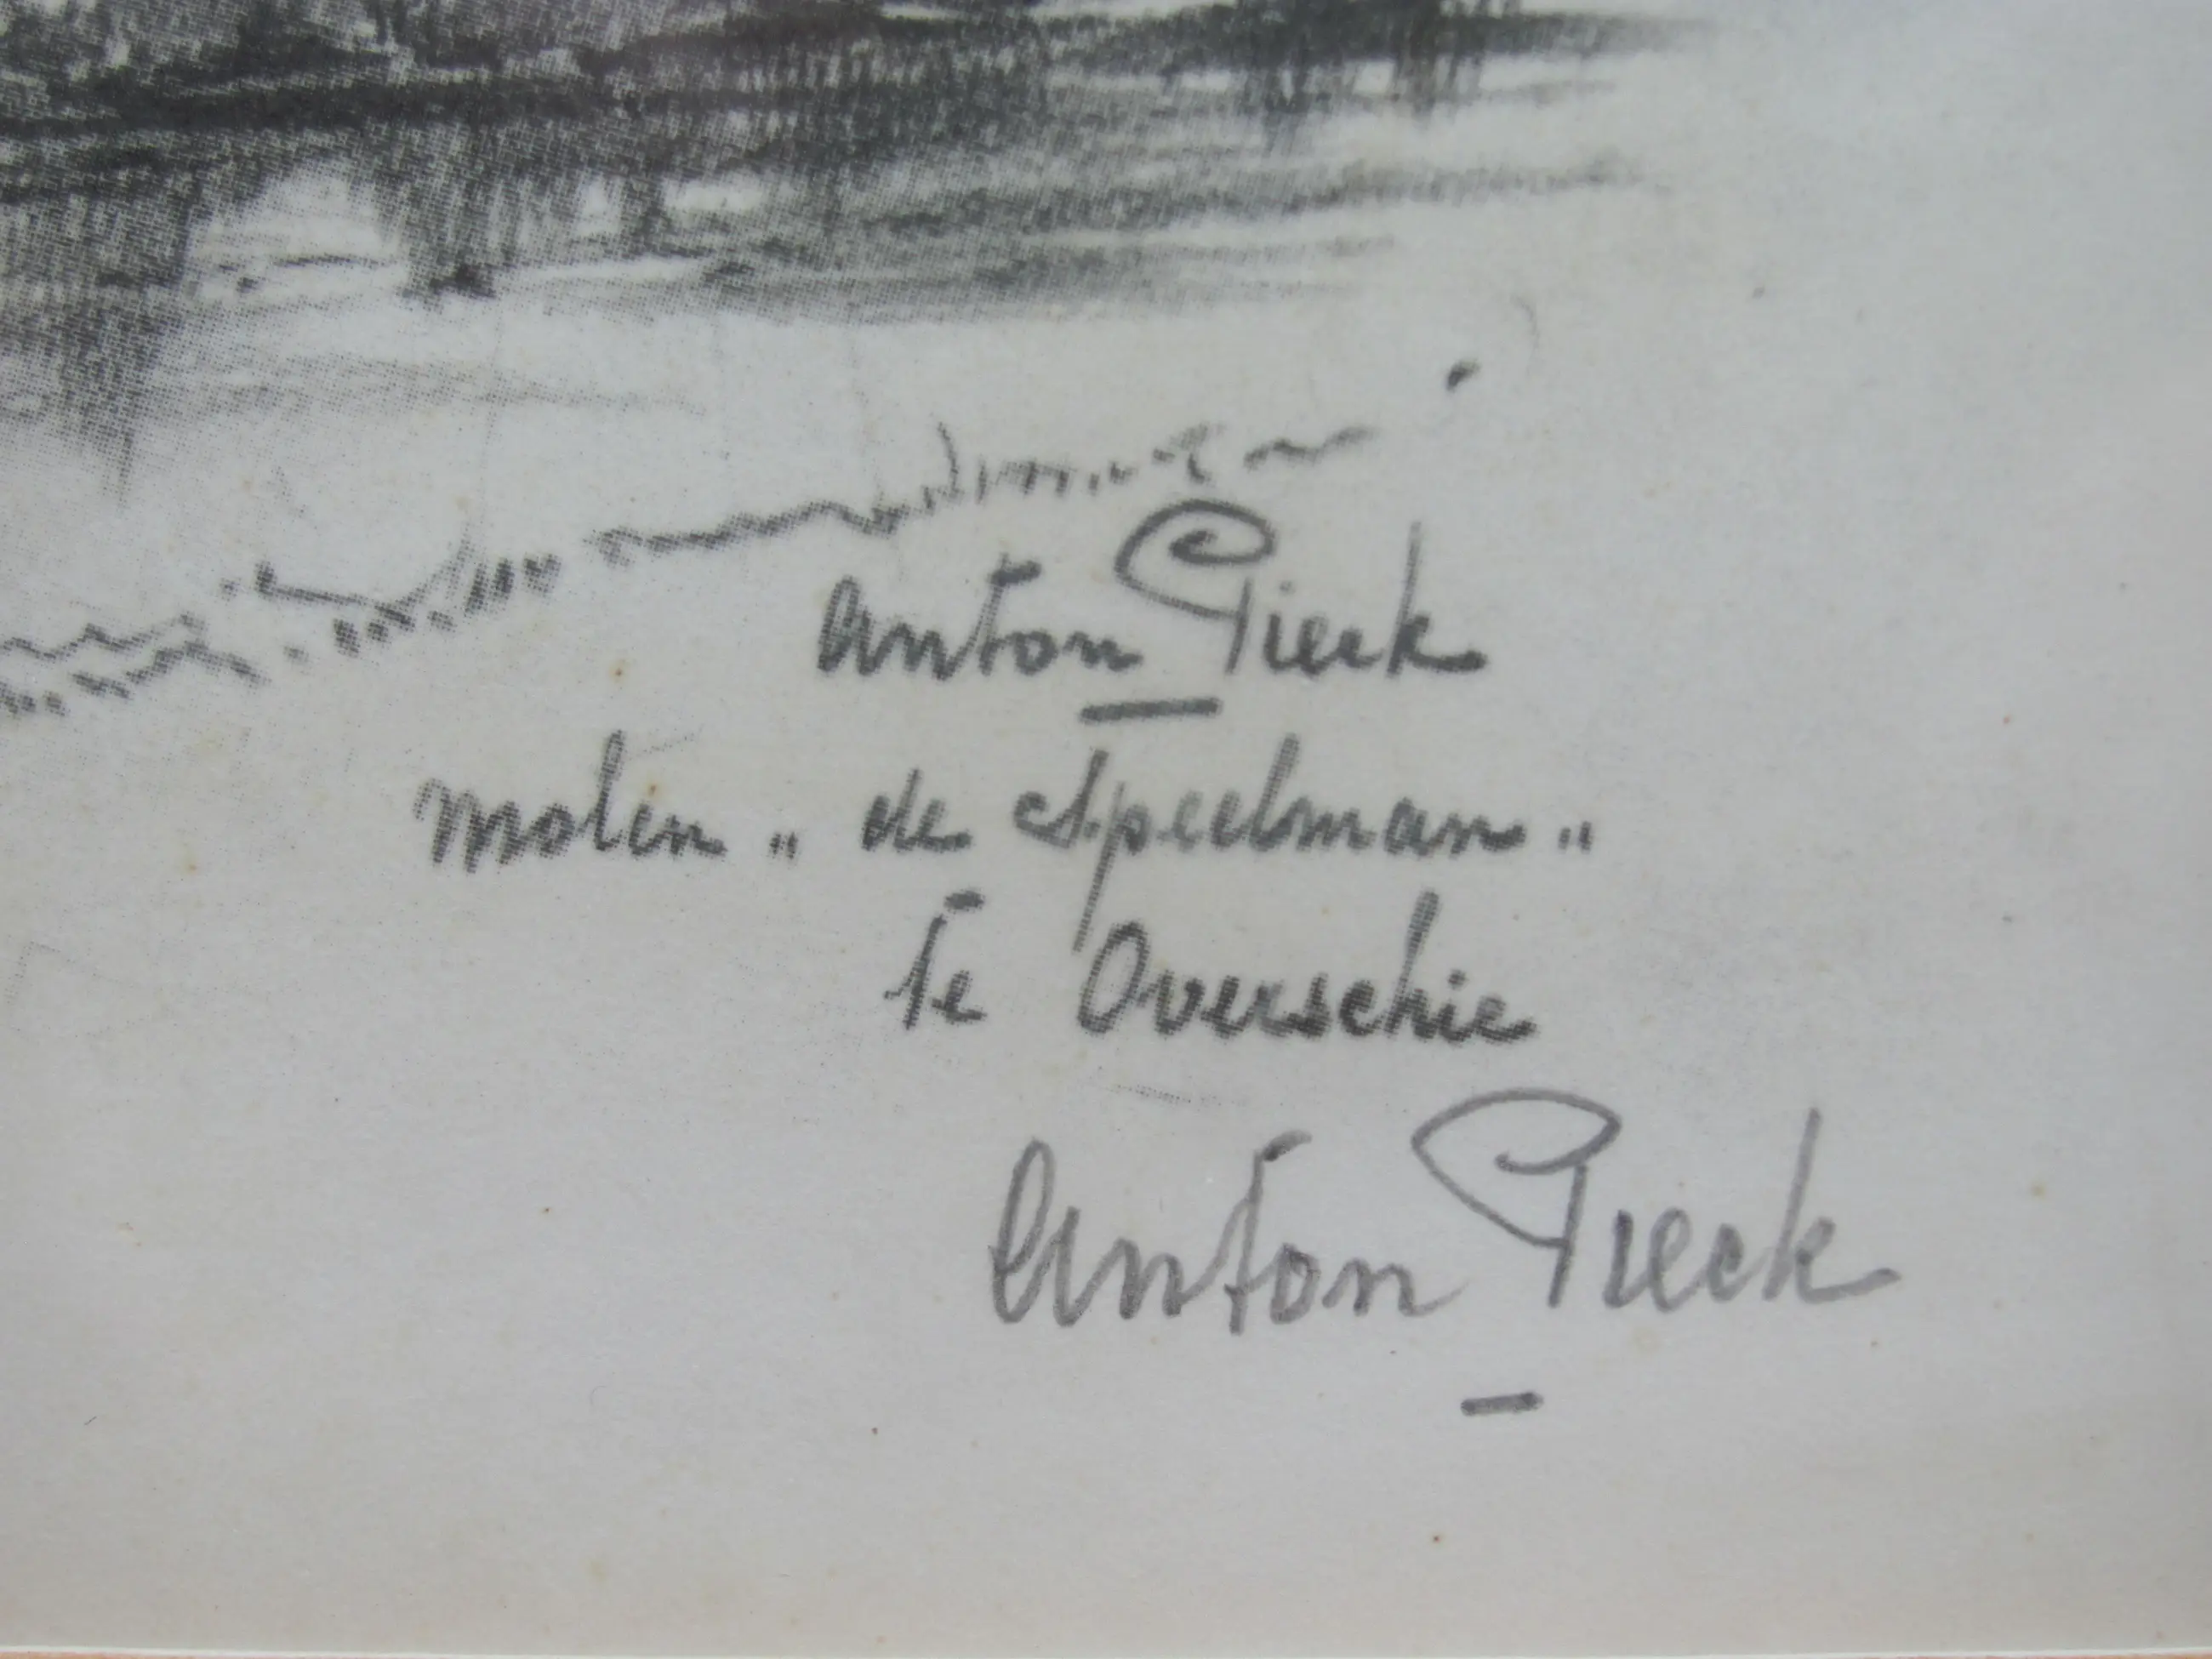 Anton Pieck
Molen „ de Speelman "
te Overschie
Anton Pieck